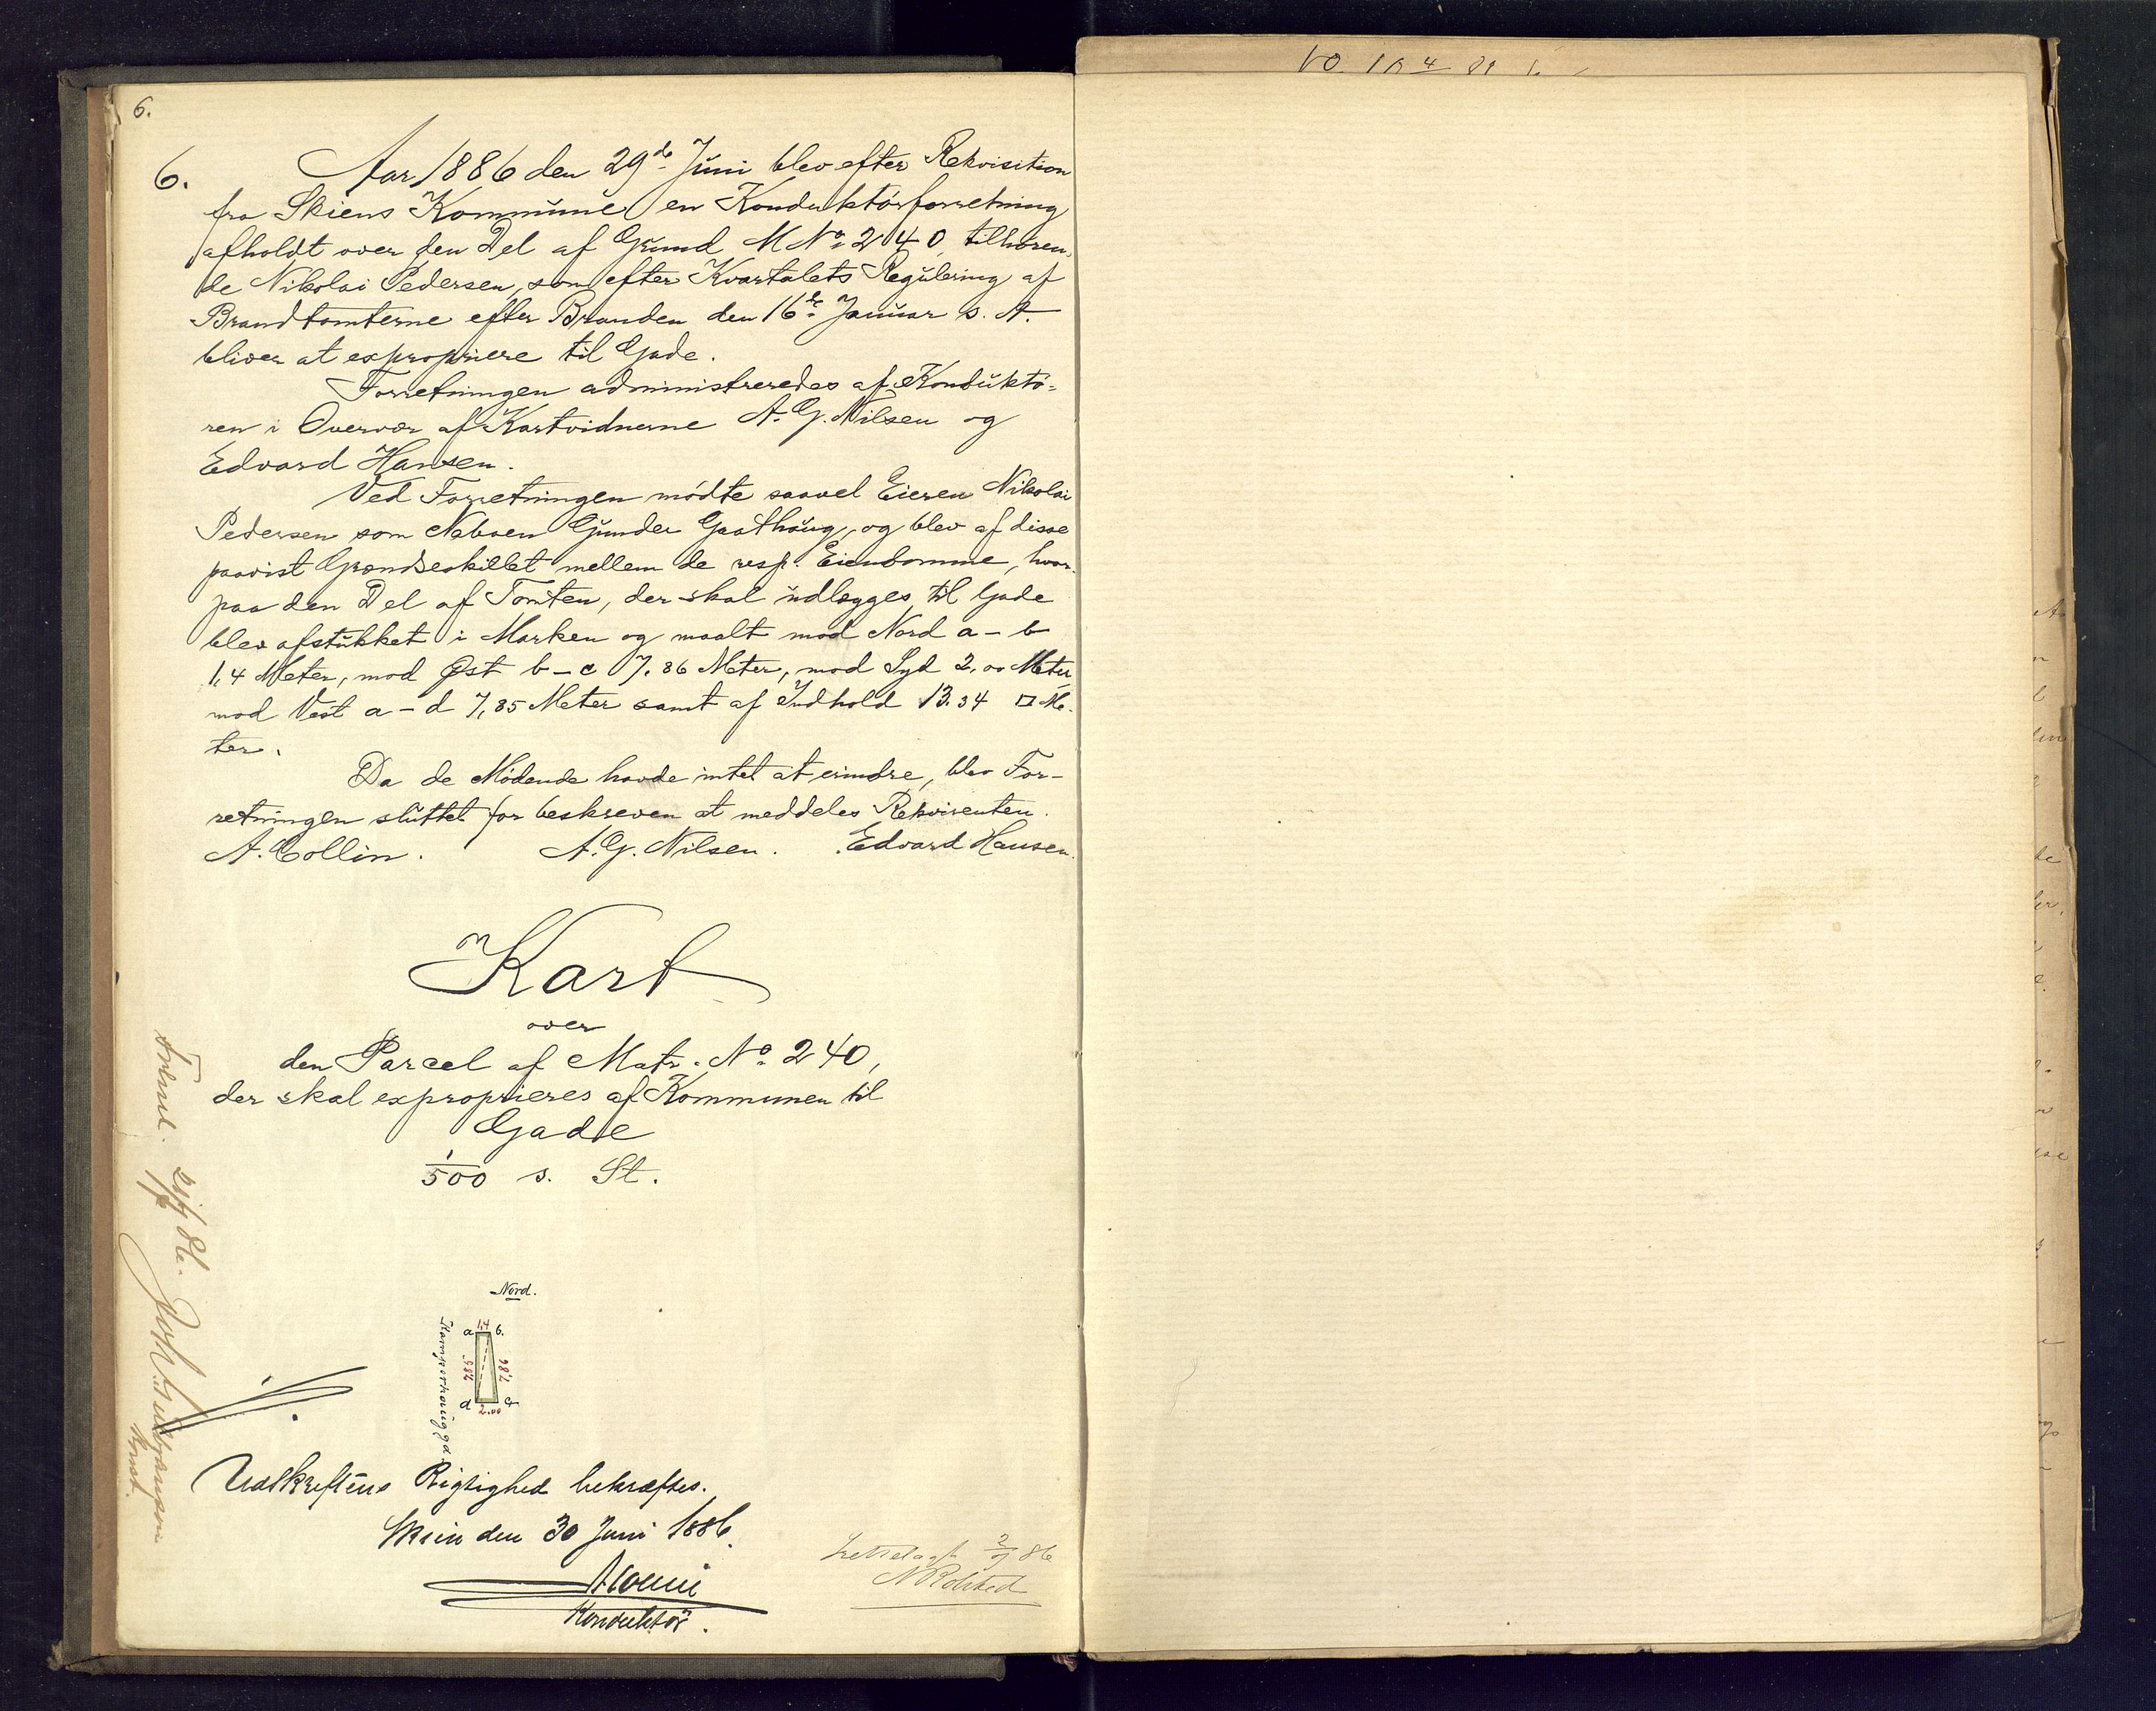 6.
6.
Aar 1886 den 29de Juni blev efter Rekvisition
fra Skiens Kommune en Konduktörforretning
afholdt over den Del af Grund M No 240, tilhøren-
de Nikolai Pedersen, som efter Kvartalets Regulering af
Brandtomterne efter Branden den 16de Januar s. A.
bliver at expropriere til Gade.
Forretningen administreredes af Kondüktö-
ren i Overvær af Kartvidnerne A. G. Nilsen og
Edvard Hansen.
Ved Forretningen mödte saavel Eieren Nikolai
Pedersen som Naboen Gunder Gaathaug, og blev af disse
paavist Grændseskillet mellem de resp. Eiendomme, hvor-
paa den Del af Tomten, der skal udlægges til Gade
blev afstukket i Marken og maalt mod Nord a - b
1,4 Meter, mod Øst b - c 7.86 Meter, mod Syd 2,00 Meter,
mod Vest a - d 7,85 Meter samt af Indhold 13.34 □ Me-
ter.
Da de Mödende havde intet at erindre, blev For-
retningen sluttet for beskreven at meddeles Rekvirenten.
A. Collin. A. G. Nilsen. Edvard Hansen.
Kart
over
den Parcel af Matr. No 240,
der skal exproprieres af Kommunen til
Gade
1/500 s. St.
Nord.
a 1,4 b.
7,85 7,86
d 2.00 c
Kamperhauggd.
Udskriftens Rigtighed bekræftes.
Skien den 30 Juni 1886.
A Collin
Konduktör.
2/7 86